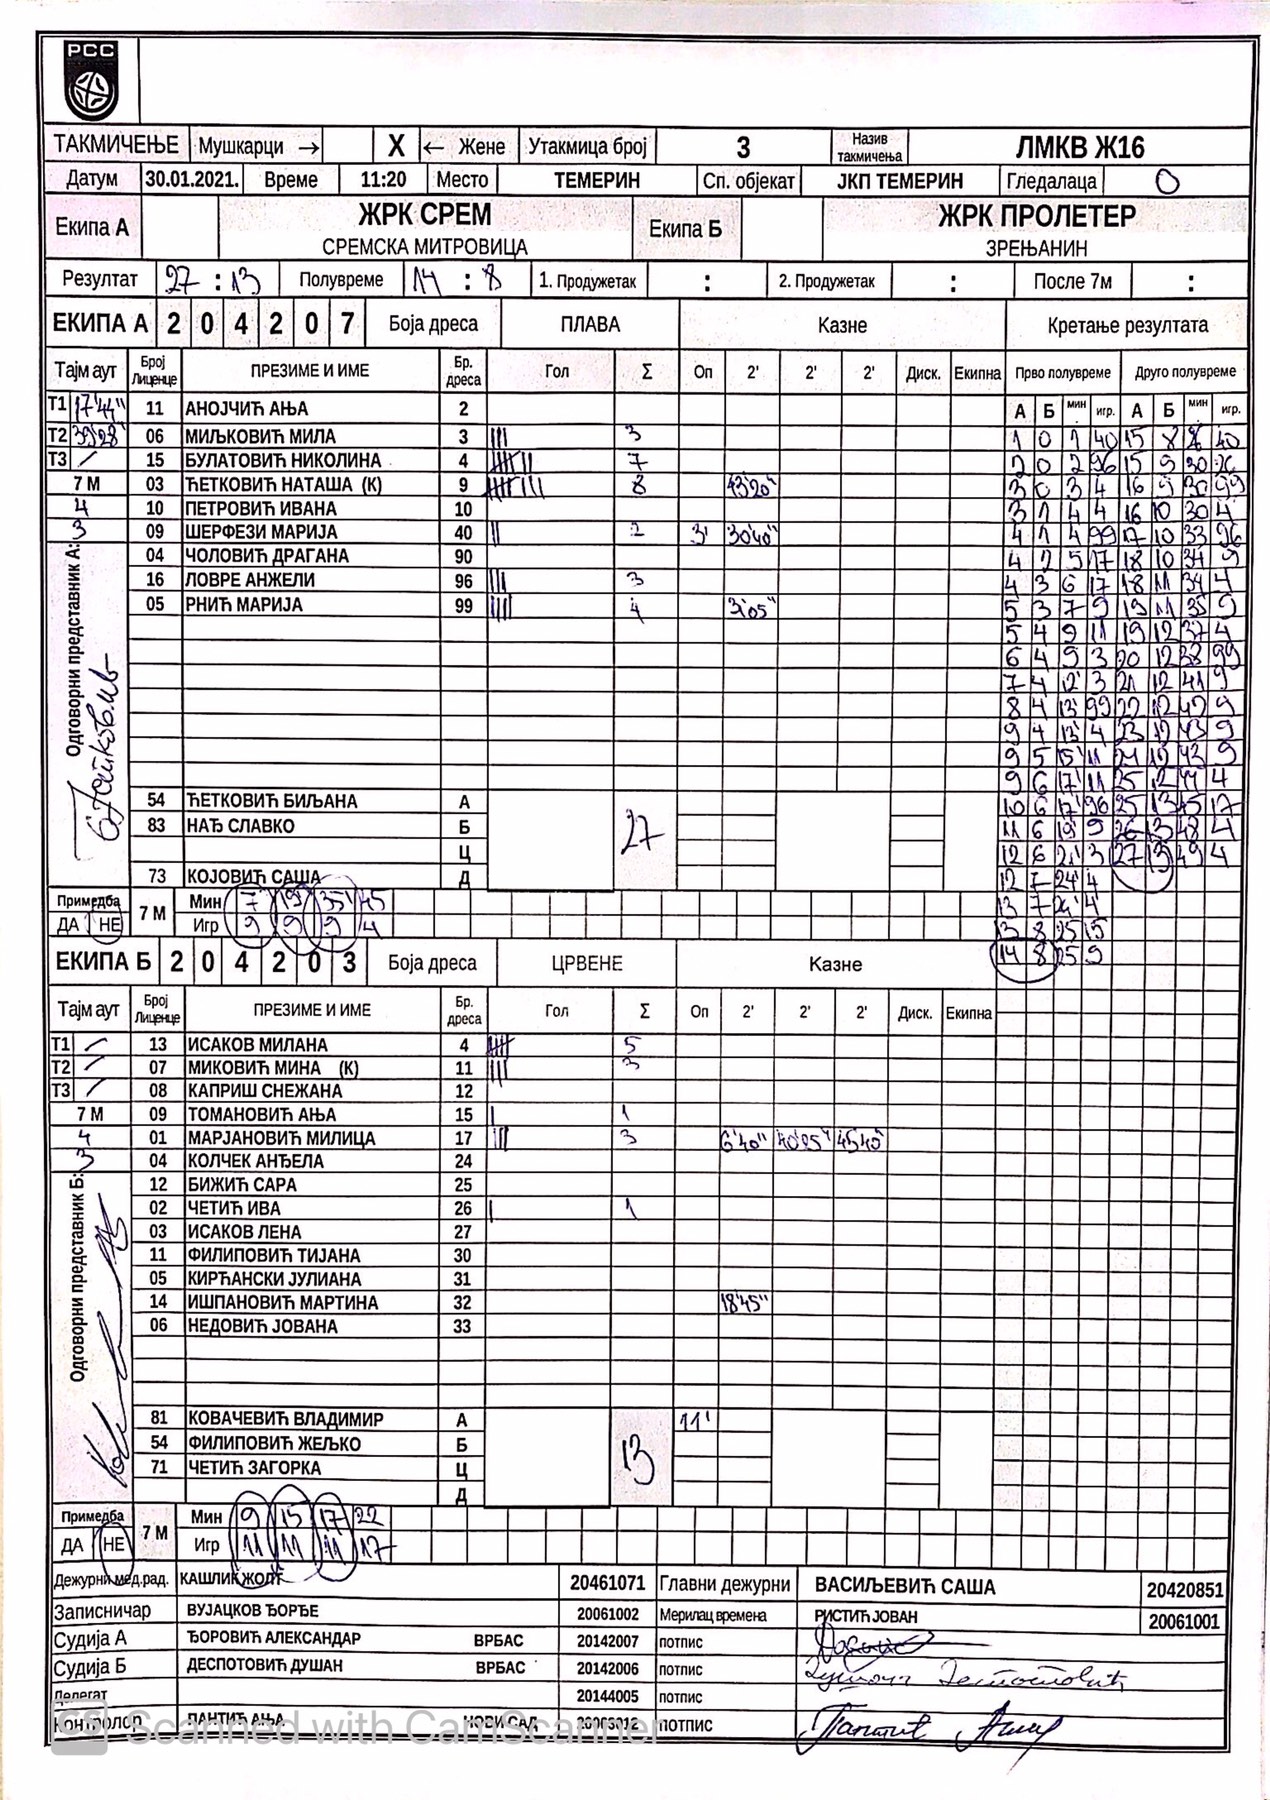 РСС
ТАКМИЧЕЊЕ Мушкарци → X ← Жене Утакмица број 3 Назив такмичења ЛМКВ Ж16
Датум 30.01.2021. Време 11:20 Место ТЕМЕРИН Сп. објекат ЈКП ТЕМЕРИН Гледалаца 0
Екипа А ЖРК СРЕМ Екипа Б ЖРК ПРОЛЕТЕР
СРЕМСКА МИТРОВИЦА ЗРЕЊАНИН
Резултат 27 : 13 Полувреме 14 : 8 1. Продужетак : 2. Продужетак : После 7м :
ЕКИПА А 2 0 4 2 0 7 Боја дреса ПЛАВА Казне Кретање резултата
Тајм аут Број Лиценце ПРЕЗИМЕ И ИМЕ Бр. дреса Гол Σ Оп 2' 2' 2' Диск. Екипна Прво полувреме Друго полувреме
Т1 17'44" 11 АНОЈЧИЋ АЊА 2 А Б мин игр. А Б мин игр.
Т2 39'28" 06 МИЉКОВИЋ МИЛА 3 3 1 0 1 40 15 8
Т3 / 15 БУЛАТОВИЋ НИКОЛИНА 4 7 2 0 2 96 15 9 30 26
7 М 03 ЋЕТКОВИЋ НАТАША (К) 9 8 43'20" 3 0 3 4 16 9 30 99
4 10 ПЕТРОВИЋ ИВАНА 10 3 1 4 4 16 10 30 4
3 09 ШЕРФЕЗИ МАРИЈА 40 2 3' 30'40" 4 1 4 99 17 10 33 96
04 ЧОЛОВИЋ ДРАГАНА 90 4 2 5 17 18 10 34 9
16 ЛОВРЕ АНЖЕЛИ 96 3 4 3 6 17 18 11 34 4
05 РНИЋ МАРИЈА 99 4 3'05" 5 3 7 9 19 11 35 9
5 4 9 11 19 12 37 4
6 4 9 3 20 12 38 99
7 4 12' 3 21 12 41 9
8 4 13' 99 22 12 42 9
9 4 13' 4 23 12 43 9
9 5 15' 11 24 12 43 9
9 6 17' 11 25 12 44 4
Одговорни представник А:
54 ЋЕТКОВИЋ БИЉАНА А 27 10 6 17' 96 25 13 45 17
83 НАЂ СЛАВКО Б 11 6 19' 9 26 13 48 4
Ц 12 6 21' 3 27 13 49 4
73 КОЈОВИЋ САША Д 12 7 24' 4
Примедба 7 М Мин 7 19' 35' 45 13 7 24' 4
ДА НЕ Игр 9 9 9 4 13 8 25 15
ЕКИПА Б 2 0 4 2 0 3 Боја дреса ЦРВЕНЕ Казне 14 8 25 9
Тајм аут Број Лиценце ПРЕЗИМЕ И ИМЕ Бр. дреса Гол Σ Оп 2' 2' 2' Диск. Екипна
Т1 / 13 ИСАКОВ МИЛАНА 4 5
Т2 / 07 МИКОВИЋ МИНА (К) 11 3
Т3 / 08 КАПРИШ СНЕЖАНА 12
7 М 09 ТОМАНОВИЋ АЊА 15 1
4 01 МАРЈАНОВИЋ МИЛИЦА 17 3 6'40" 40'05" 45'40"
3 04 КОЛЧЕК АНЂЕЛА 24
12 БИЖИЋ САРА 25
02 ЧЕТИЋ ИВА 26 1
03 ИСАКОВ ЛЕНА 27
11 ФИЛИПОВИЋ ТИЈАНА 30
05 КИРЋАНСКИ ЈУЛИАНА 31
14 ИШПАНОВИЋ МАРТИНА 32 18'45"
06 НЕДОВИЋ ЈОВАНА 33
Одговорни представник Б:
81 КОВАЧЕВИЋ ВЛАДИМИР А 13 11'
54 ФИЛИПОВИЋ ЖЕЉКО Б
71 ЧЕТИЋ ЗАГОРКА Ц
Д
Примедба 7 М Мин 9 15 17 22
ДА НЕ Игр 11 11 11 17
Дежурни мед.рад. КАШЛИК ЖОЛТ 20461071 Главни дежурни ВАСИЉЕВИЋ САША 20420851
Записничар ВУЈАЦКОВ ЂОРЂЕ 20061002 Мерилац времена РИСТИЋ ЈОВАН 20061001
Судија А ЂОРОВИЋ АЛЕКСАНДАР ВРБАС 20142007 потпис
Судија Б ДЕСПОТОВИЋ ДУШАН ВРБАС 20142006 потпис
Делегат 20144005 потпис
Контролор ПАНТИЋ АЊА НОВИ САД 20063012 потпис Пантић Ања
CS Scanned with CamScanner